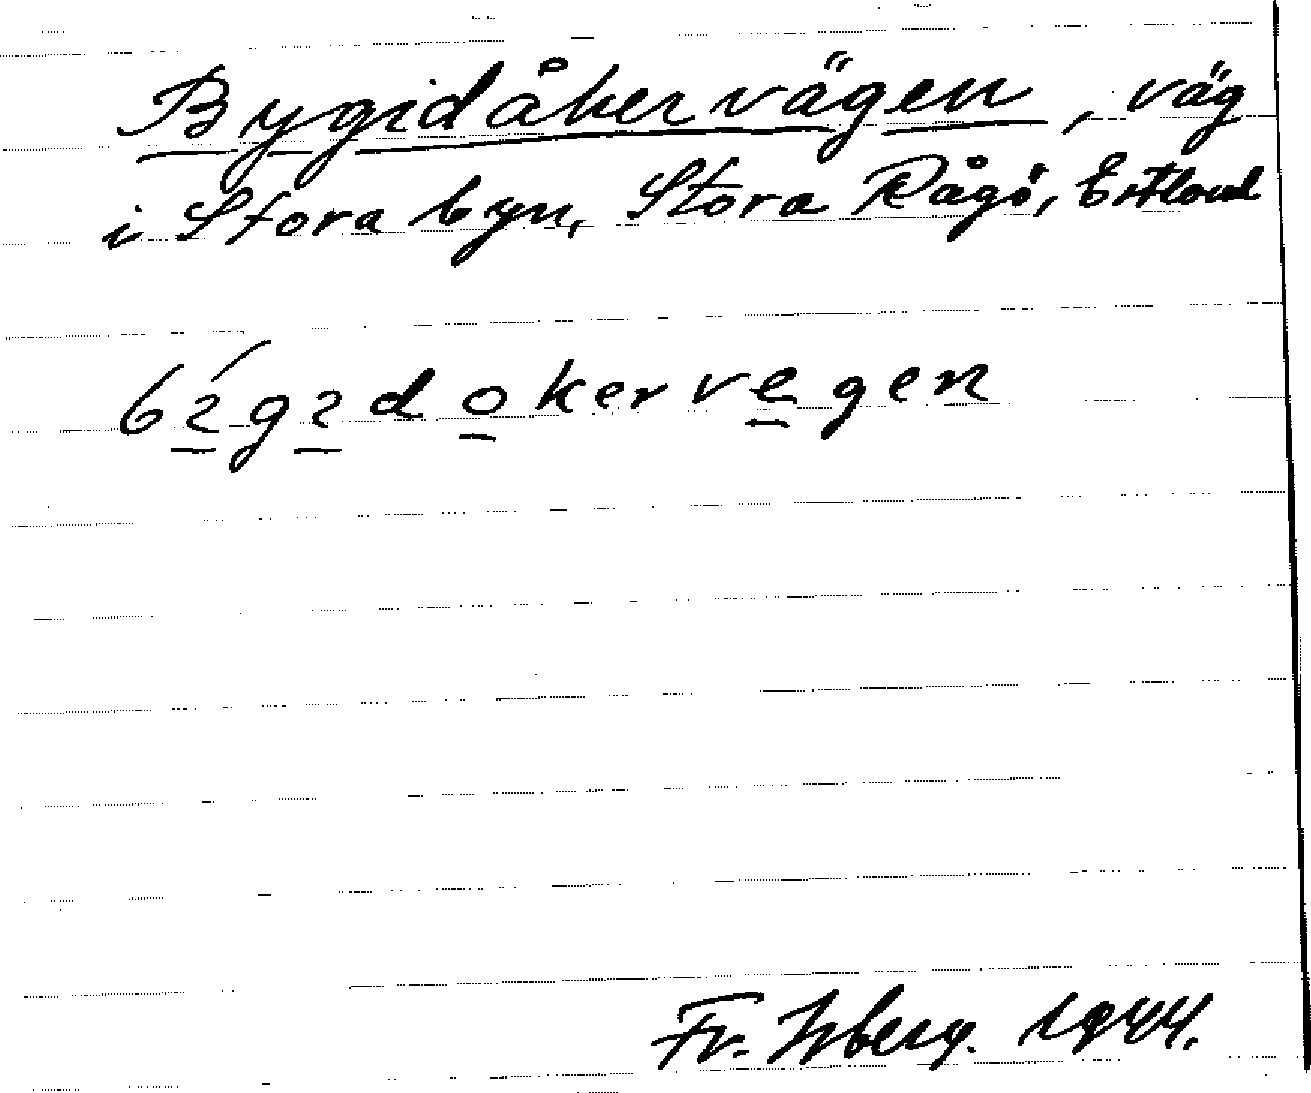 Bygidåkervägen, väg
i Stora byn, Stora Rågö, Estland
bı̱́gı̱do̱kerve̱gen
Fr. Isberg. 1944.